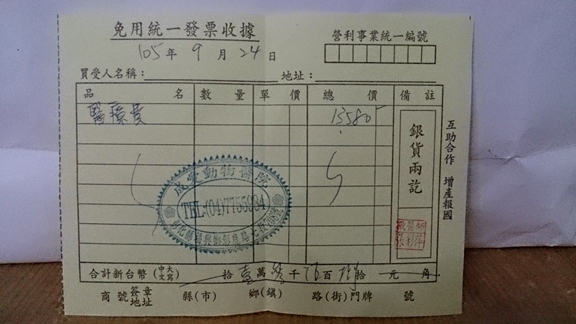 免用統一發票收據
105年 9月 24日
營利事業統一編號
買受人名稱： 地址：
品名 數量 單價 總價 備註
醫療費 13580
銀貨兩訖
互助合作 增產報國
動物醫院
TEL:(04)7785984
合計新台幣(中文大寫) 拾壹萬 千 百 拾 元 角
商號簽章地址 縣(市) 鄉(鎮) 路(街)門牌 號